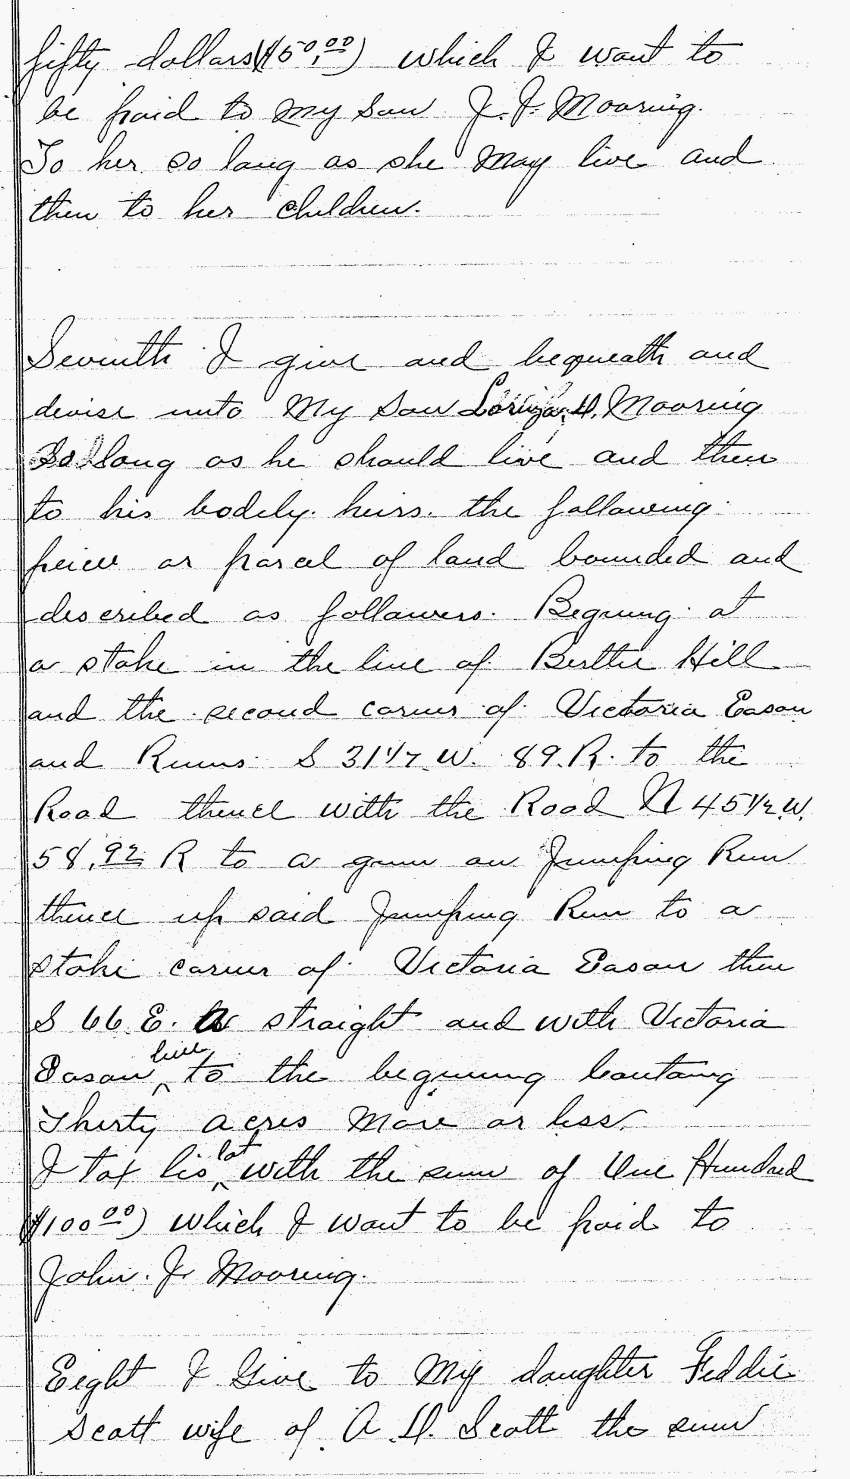 fifty dollars ($50,00) which I want to
be paid to my son J. J. Mooring.
To her so long as she may live and
then to her children.
Seventh I give and bequeath and
devise unto My Son H. Mooring
So long as he should live and then
to his bodily heirs. the following
peice or parcel of land bounded and
described as followers. Begning at
a stake in the line of Berthe Hill
and the second corner of Victoria Eason
and Runs S 31 1/7 W. 89 R. to the
Road thence with the Road N 45 1/2 W.
58.92 R to a gum on Jumping Run
thence up said Jumping Run to a
stake corner of Victoria Eason then
S 66 E. straight and with Victoria
Eason line to the begining
Thirty acres More or less.
I tax his lot with the sum of One Hundred
($100 00) which I want to be paid to
John. J. Mooring.
Eight I Give to My daughter Feddie
Scott wife of A. H. Scott the sum